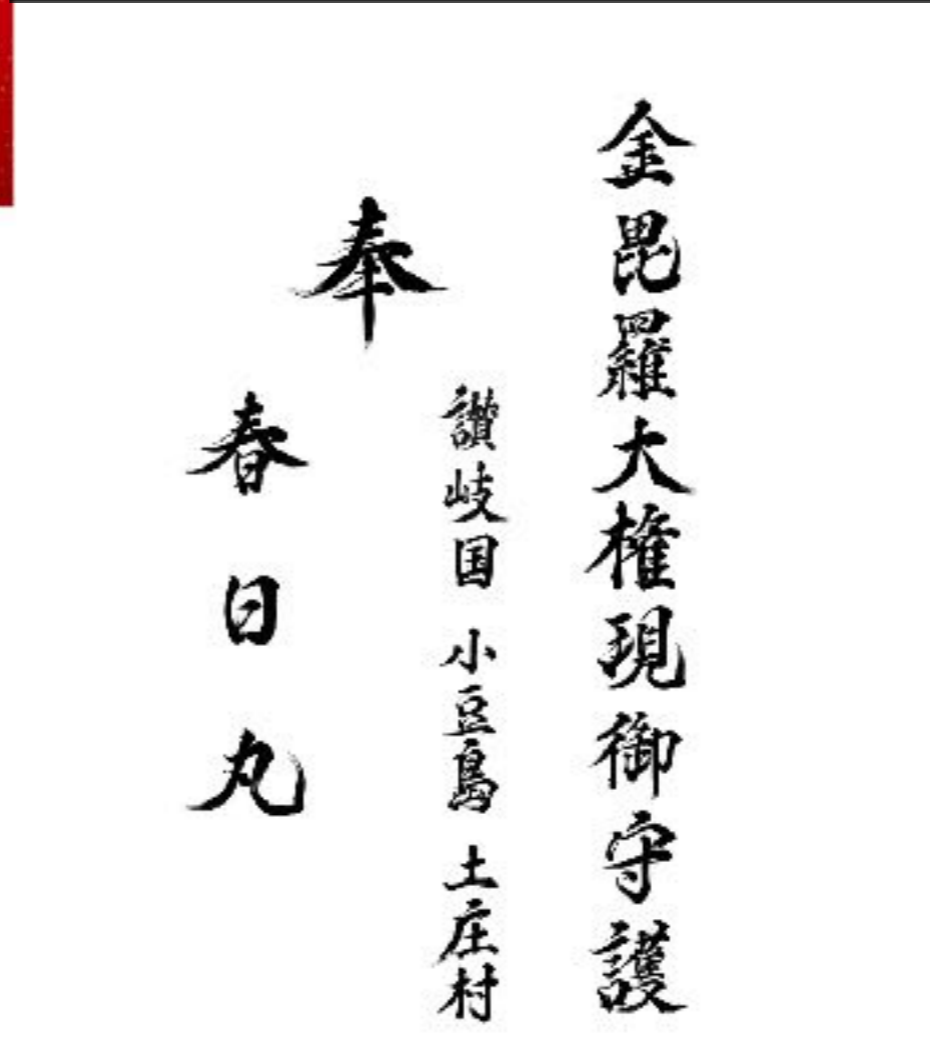 金毘羅大権現御守護
奉
讃岐国 小豆島 土庄村
春日丸